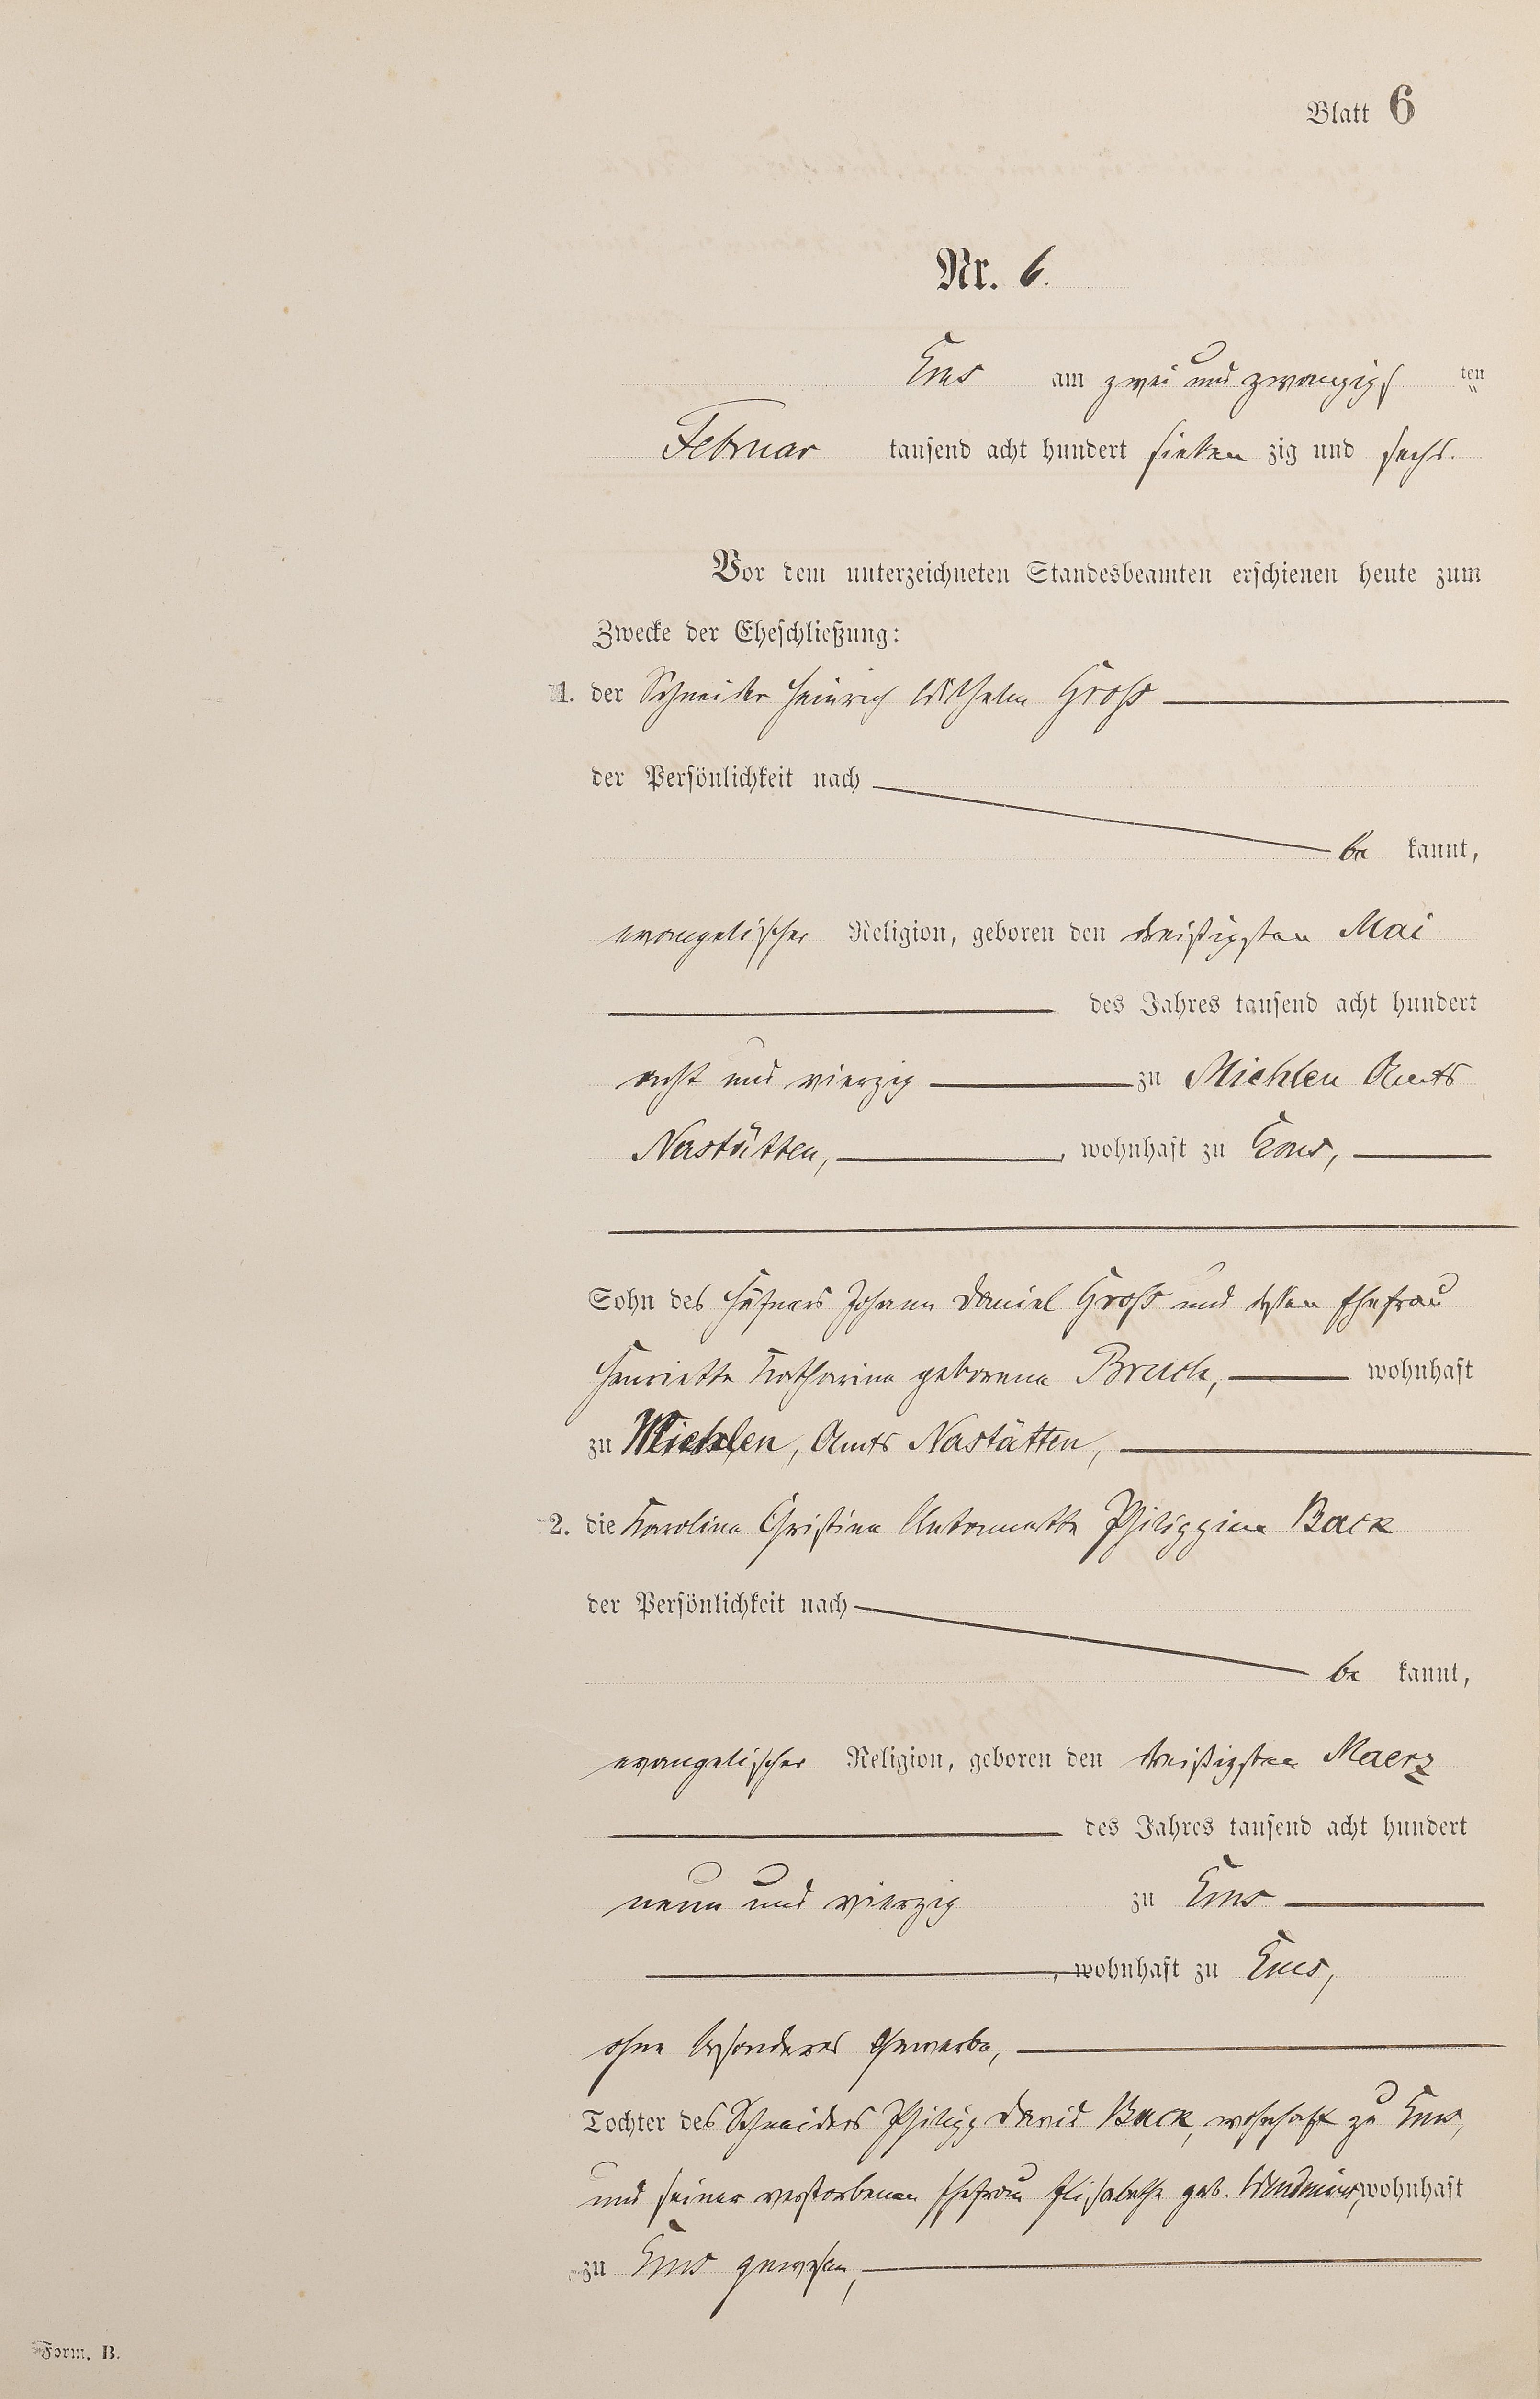 Blatt 6
Nr. 6.
Ems am zwei und zwanzigs ten
Februar tausend acht hundert sieben zig und sechs.
Vor dem unterzeichneten Standesbeamten erschienen heute zum
Zwecke der Eheschließung:
1. der Schneider Heinrich Wilhelm Groß
der Persönlichkeit nach
be kannt,
evangelischer Religion, geboren den dreißigsten Mai
des Jahres tausend acht hundert
acht und vierzig zu Miehlen Amts
Nastätten, wohnhaft zu Ems,
Sohn des Häfners Johann Daniel Groß und dessen Ehefrau
Henriette Katharina geborene Bruch, wohnhaft
zu Miehlen, Amts Nastätten,
2. die Karoline Christine Antonnette Philippine Back
der Persönlichkeit nach
be kannt,
evangelischer Religion, geboren den dreißigsten Maerz
des Jahres tausend acht hundert
neun und vierzig zu Ems
, wohnhaft zu Ems,
ohne besonderes Gewerbe,
Tochter des Schneiders Philipp David Back, wohnhaft zu Ems,
und seiner verstorbenen Ehefrau Elisabethe geb. wohnhaft
zu Ems gewesen,
Form. B.